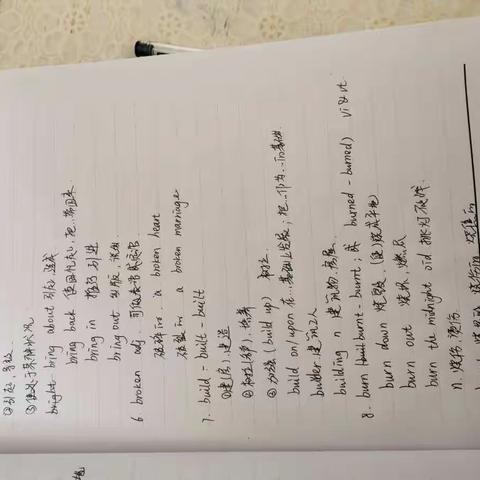 ②引起 导致
③使处于某种状况
bright. bring about 引起 造成
bring back 使回忆起, 把…带回来
bring in 推行 引进
bring out 出版, 说出
6 broken adj. 可做表语或定语
破碎的心 a broken heart
破裂 a broken marriage
7. build - built - built
①建(房), 建造
②
③加强 (build up) 树立
build on/upon 在…基础上发展; 把…作为…的基础
builder 建筑工人
building n 建筑物. 房屋
8. burn (burnt - burnt; 或 burned - burned) vi & vt.
burn down 烧毁, (使)烧成平地
burn out 烧坏, 燃尽
burn the midnight oid 挑灯夜战
n. 烧伤, 烫伤